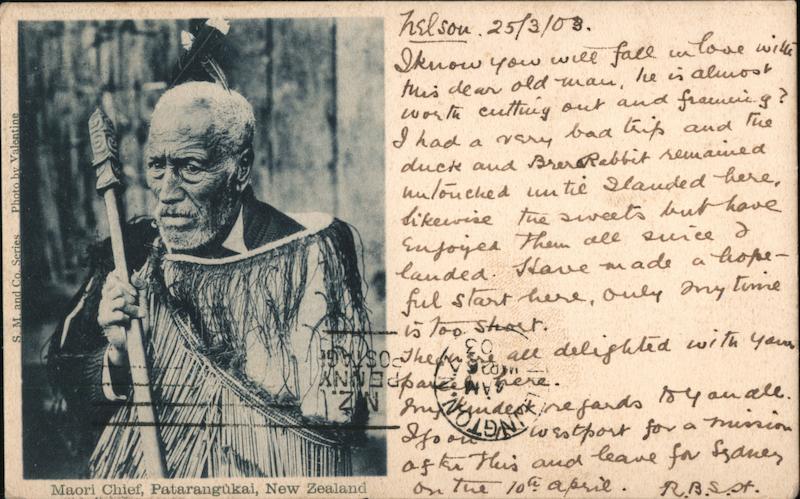 S. M. and Co. Series Photo by Valentine
Maori Chief, Patarangŭkai, New Zealand
Nelson. 25/3/03.
I know you will fall in love with
this dear old man, he is almost
worth cutting out and framing?
I had a very bad trip and the
duck and Brer Rabbit remained
untouched until I landed here,
likewise the sweets but have
enjoyed them all since I
landed. Have made a hope-
ful start here, only my time
is too short.
all delighted with your
here.
My kindest regards to you all.
I go on Westport for a mission
after this and leave for Sydney
on the 10th April. R.B.S.H.
N.Z
PENNY
POSTAGE
03